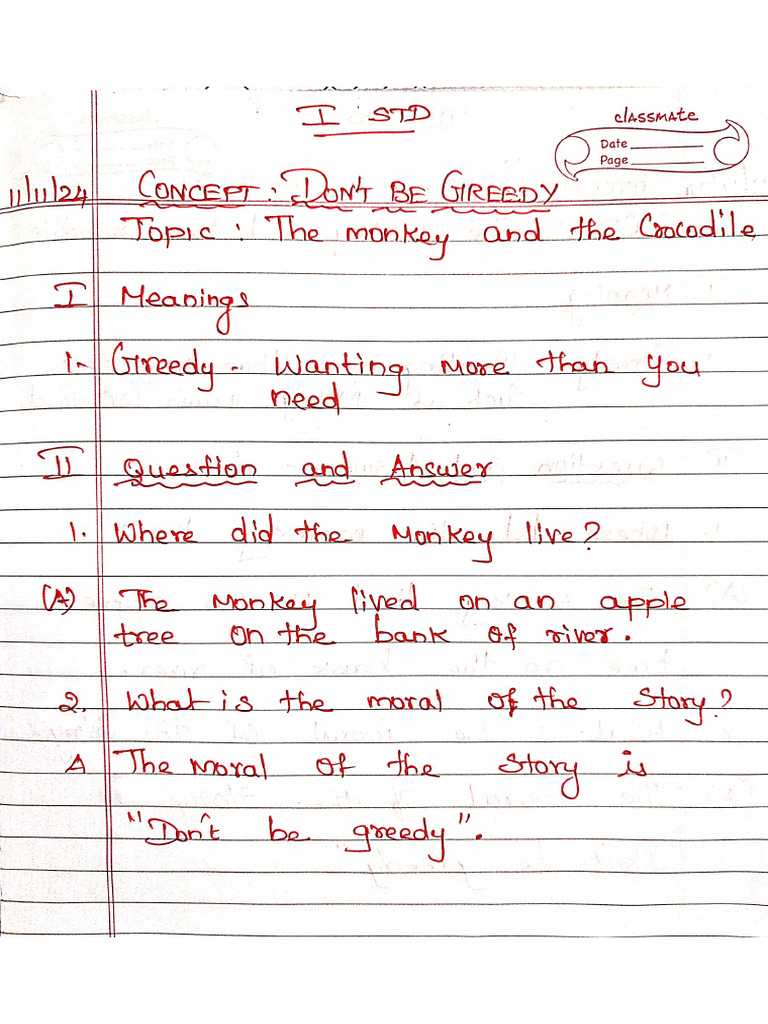 I STD
classmate
Date
Page
11/11/24 CONCEPT: DON'T BE GREEDY
Topic: The monkey and the Crocodile
I Meanings
1- Greedy - Wanting more than you
need
II Question and Answer
1. Where did the Monkey live?
(A) The Monkey lived on an apple
tree on the bank of river.
2. What is the moral of the Story?
A The Moral of the Story is
"Don't be greedy".